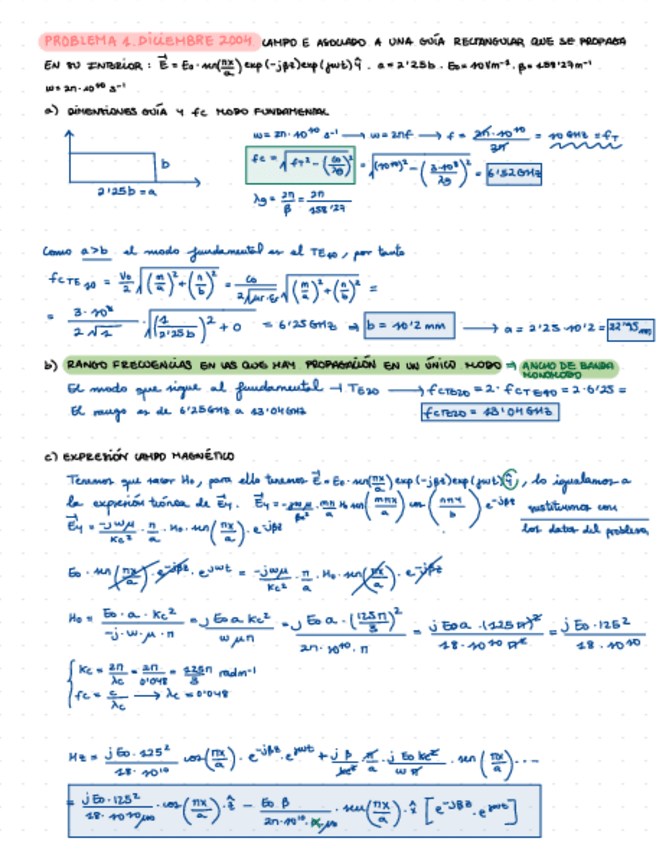 PROBLEMA 1. DICIEMBRE 2004 CAMPO E ASOCIADO A UNA GUÍA RECTANGULAR QUE SE PROPAGA
EN SU INTERIOR: E⃗ = E₀ · sen(πx/a) exp(-jβz) exp(jωt) ŷ . a = 2'25b . E₀ = 10 Vm⁻¹ . β = 158'27 m⁻¹
ω = 2π·10¹⁰ s⁻¹
a) DIMENSIONES GUÍA Y fc MODO FUNDAMENTAL
ω = 2π·10¹⁰ s⁻¹ → ω = 2πf → f = 2π·10¹⁰/2π = 10 GHz = f_T
b
2'25b = a
fc = √(f_T² - (c₀/λg)²) = √((10¹⁰)² - (3·10⁸/λg)²) = 6'52 GHz
λg = 2π/β = 2π/158'27
Como a>b el modo fundamental es el TE₁₀, por tanto
fc TE₁₀ = V₀/2 √((m/a)² + (n/b)²) = c₀/(2√μr·εr) √((m/a)² + (n/b)²) =
= 3·10⁸/(2√1) · √((1/2'25b)² + 0) = 6'25 GHz ⇒ b = 10'2 mm → a = 2'25·10'2 = 22'95 mm
b) RANGO FRECUENCIAS EN LAS QUE HAY PROPAGACIÓN EN UN ÚNICO MODO ⇒ ANCHO DE BANDA
MONOMODO
El modo que sigue al fundamental → TE₂₀ → fcTE20 = 2·fcTE10 = 2·6'25 =
El rango es de 6'25GHz a 13'04GHz fcTE20 = 13'04 GHz
c) EXPRESIÓN CAMPO MAGNÉTICO
Tenemos que sacar H₀, para ello tenemos E⃗ = E₀·sen(πx/a) exp(-jβz) exp(jωt) ŷ, lo igualamos a
la expresión teórica de E⃗y. sustituimos con
E⃗y = -jωμ/kc² · π/a · H₀ · sen(πx/a) · e^-jβz los datos del problema
E₀ · sen(πx/a) · e^-jβz · e^jωt = -jωμ/kc² · π/a · H₀ · sen(πx/a) · e^-jβz
H₀ = E₀·a·kc²/(-j·ω·μ·π) = jE₀a kc²/(ωμπ) = jE₀a·(125π/3)²/(2π·10¹⁰·π) = jE₀a·(125π)²/(18·10¹⁰π²) = jE₀·125²/(18·10¹⁰)
kc = 2π/λc = 2π/0'048 = 125π/3 rad m⁻¹
fc = c/λc → λc = 0'048
Hz = jE₀·125²/(18·10¹⁰) cos(πx/a) · e^-jβz · e^jωt + jβ/kc² · π/a · jE₀kc²/(ωπ) · sen(πx/a) ...
= jE₀·125²/(18·10¹⁰μ₀) · cos(πx/a) · ẑ - E₀β/(2π·10¹⁰·μ₀) · sen(πx/a) · x̂ [e^-jβz · e^jωt]